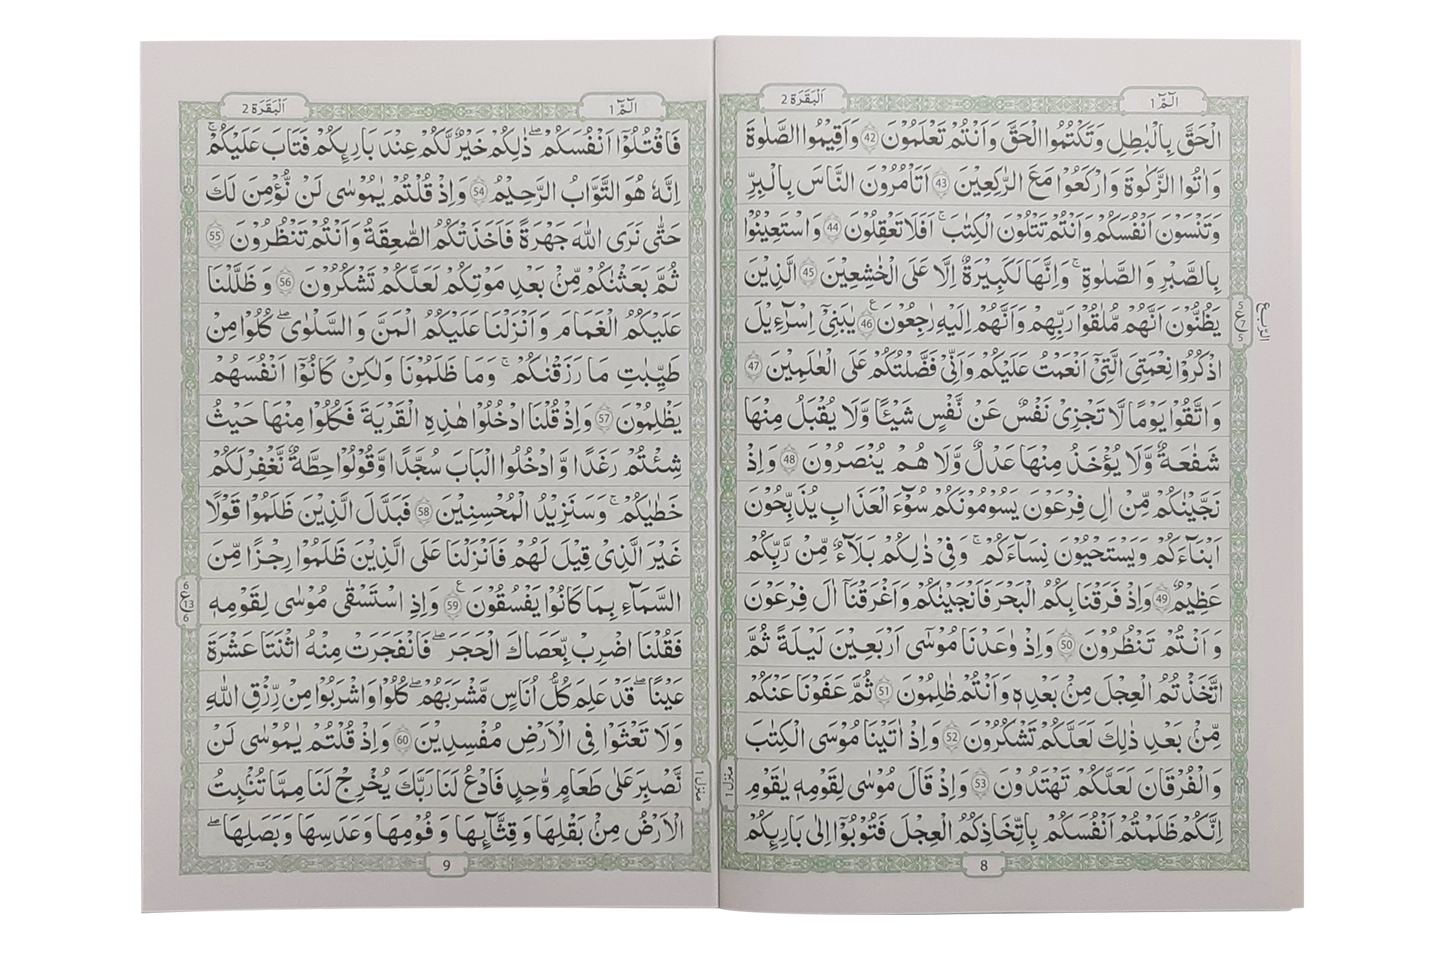 الٓمّٓ 1
اَلْبَقَرَة 2
الْحَقَّ بِالْبٰطِلِ وَتَكْتُمُوا الْحَقَّ وَاَنْتُمْ تَعْلَمُوْنَ 42 وَاَقِيْمُوا الصَّلٰوةَ
وَاٰتُوا الزَّكٰوةَ وَارْكَعُوْا مَعَ الرّٰكِعِيْنَ 43 اَتَاْمُرُوْنَ النَّاسَ بِالْبِرِّ
وَتَنْسَوْنَ اَنْفُسَكُمْ وَاَنْتُمْ تَتْلُوْنَ الْكِتٰبَ ۚ اَفَلَا تَعْقِلُوْنَ 44 وَاسْتَعِيْنُوْا
بِالصَّبْرِ وَالصَّلٰوةِ ۚ وَاِنَّهَا لَكَبِيْرَةٌ اِلَّا عَلَى الْخٰشِعِيْنَ 45 الَّذِيْنَ
يَظُنُّوْنَ اَنَّهُمْ مُّلٰقُوْا رَبِّهِمْ وَاَنَّهُمْ اِلَيْهِ رٰجِعُوْنَ ع 46 يٰبَنِيْٓ اِسْرَآءِيْلَ
اذْكُرُوْا نِعْمَتِيَ الَّتِيْٓ اَنْعَمْتُ عَلَيْكُمْ وَاَنِّيْ فَضَّلْتُكُمْ عَلَى الْعٰلَمِيْنَ 47
وَاتَّقُوْا يَوْمًا لَّا تَجْزِيْ نَفْسٌ عَنْ نَّفْسٍ شَيْـًٔا وَّلَا يُقْبَلُ مِنْهَا
شَفَاعَةٌ وَّلَا يُؤْخَذُ مِنْهَا عَدْلٌ وَّلَا هُمْ يُنْصَرُوْنَ 48 وَاِذْ
نَجَّيْنٰكُمْ مِّنْ اٰلِ فِرْعَوْنَ يَسُوْمُوْنَكُمْ سُوْٓءَ الْعَذَابِ يُذَبِّحُوْنَ
اَبْنَآءَكُمْ وَيَسْتَحْيُوْنَ نِسَآءَكُمْ ۚ وَفِيْ ذٰلِكُمْ بَلَآءٌ مِّنْ رَّبِّكُمْ
عَظِيْمٌ 49 وَاِذْ فَرَقْنَا بِكُمُ الْبَحْرَ فَاَنْجَيْنٰكُمْ وَاَغْرَقْنَآ اٰلَ فِرْعَوْنَ
وَاَنْتُمْ تَنْظُرُوْنَ 50 وَاِذْ وٰعَدْنَا مُوْسٰٓى اَرْبَعِيْنَ لَيْلَةً ثُمَّ
اتَّخَذْتُمُ الْعِجْلَ مِنْۢ بَعْدِهٖ وَاَنْتُمْ ظٰلِمُوْنَ 51 ثُمَّ عَفَوْنَا عَنْكُمْ
مِّنْۢ بَعْدِ ذٰلِكَ لَعَلَّكُمْ تَشْكُرُوْنَ 52 وَاِذْ اٰتَيْنَا مُوْسَى الْكِتٰبَ
وَالْفُرْقَانَ لَعَلَّكُمْ تَهْتَدُوْنَ 53 وَاِذْ قَالَ مُوْسٰى لِقَوْمِهٖ يٰقَوْمِ
اِنَّكُمْ ظَلَمْتُمْ اَنْفُسَكُمْ بِاتِّخَاذِكُمُ الْعِجْلَ فَتُوْبُوْٓا اِلٰى بَارِئِكُمْ
الربع
5
ع 7
5
منزل 1
8
الٓمّٓ 1
اَلْبَقَرَة 2
فَاقْتُلُوْٓا اَنْفُسَكُمْ ۖ ذٰلِكُمْ خَيْرٌ لَّكُمْ عِنْدَ بَارِئِكُمْ فَتَابَ عَلَيْكُمْ ۚ
اِنَّهٗ هُوَ التَّوَّابُ الرَّحِيْمُ 54 وَاِذْ قُلْتُمْ يٰمُوْسٰى لَنْ نُّؤْمِنَ لَكَ
حَتّٰى نَرَى اللّٰهَ جَهْرَةً فَاَخَذَتْكُمُ الصّٰعِقَةُ وَاَنْتُمْ تَنْظُرُوْنَ 55
ثُمَّ بَعَثْنٰكُمْ مِّنْۢ بَعْدِ مَوْتِكُمْ لَعَلَّكُمْ تَشْكُرُوْنَ 56 وَظَلَّلْنَا
عَلَيْكُمُ الْغَمَامَ وَاَنْزَلْنَا عَلَيْكُمُ الْمَنَّ وَالسَّلْوٰى ۖ كُلُوْا مِنْ
طَيِّبٰتِ مَا رَزَقْنٰكُمْ ۚ وَمَا ظَلَمُوْنَا وَلٰكِنْ كَانُوْٓا اَنْفُسَهُمْ
يَظْلِمُوْنَ 57 وَاِذْ قُلْنَا ادْخُلُوْا هٰذِهِ الْقَرْيَةَ فَكُلُوْا مِنْهَا حَيْثُ
شِئْتُمْ رَغَدًا وَّادْخُلُوا الْبَابَ سُجَّدًا وَّقُوْلُوْا حِطَّةٌ نَّغْفِرْ لَكُمْ
خَطٰيٰكُمْ ۚ وَسَنَزِيْدُ الْمُحْسِنِيْنَ 58 فَبَدَّلَ الَّذِيْنَ ظَلَمُوْا قَوْلًا
غَيْرَ الَّذِيْ قِيْلَ لَهُمْ فَاَنْزَلْنَا عَلَى الَّذِيْنَ ظَلَمُوْا رِجْزًا مِّنَ
السَّمَآءِ بِمَا كَانُوْا يَفْسُقُوْنَ ع 59 وَاِذِ اسْتَسْقٰى مُوْسٰى لِقَوْمِهٖ
فَقُلْنَا اضْرِبْ بِّعَصَاكَ الْحَجَرَ ۖ فَانْفَجَرَتْ مِنْهُ اثْنَتَا عَشْرَةَ
عَيْنًا ۖ قَدْ عَلِمَ كُلُّ اُنَاسٍ مَّشْرَبَهُمْ ۖ كُلُوْا وَاشْرَبُوْا مِنْ رِّزْقِ اللّٰهِ
وَلَا تَعْثَوْا فِى الْاَرْضِ مُفْسِدِيْنَ 60 وَاِذْ قُلْتُمْ يٰمُوْسٰى لَنْ
نَّصْبِرَ عَلٰى طَعَامٍ وَّاحِدٍ فَادْعُ لَنَا رَبَّكَ يُخْرِجْ لَنَا مِمَّا تُنْۢبِتُ
الْاَرْضُ مِنْۢ بَقْلِهَا وَقِثَّآئِهَا وَفُوْمِهَا وَعَدَسِهَا وَبَصَلِهَا ۖ
6
ع 13
6
منزل 1
9